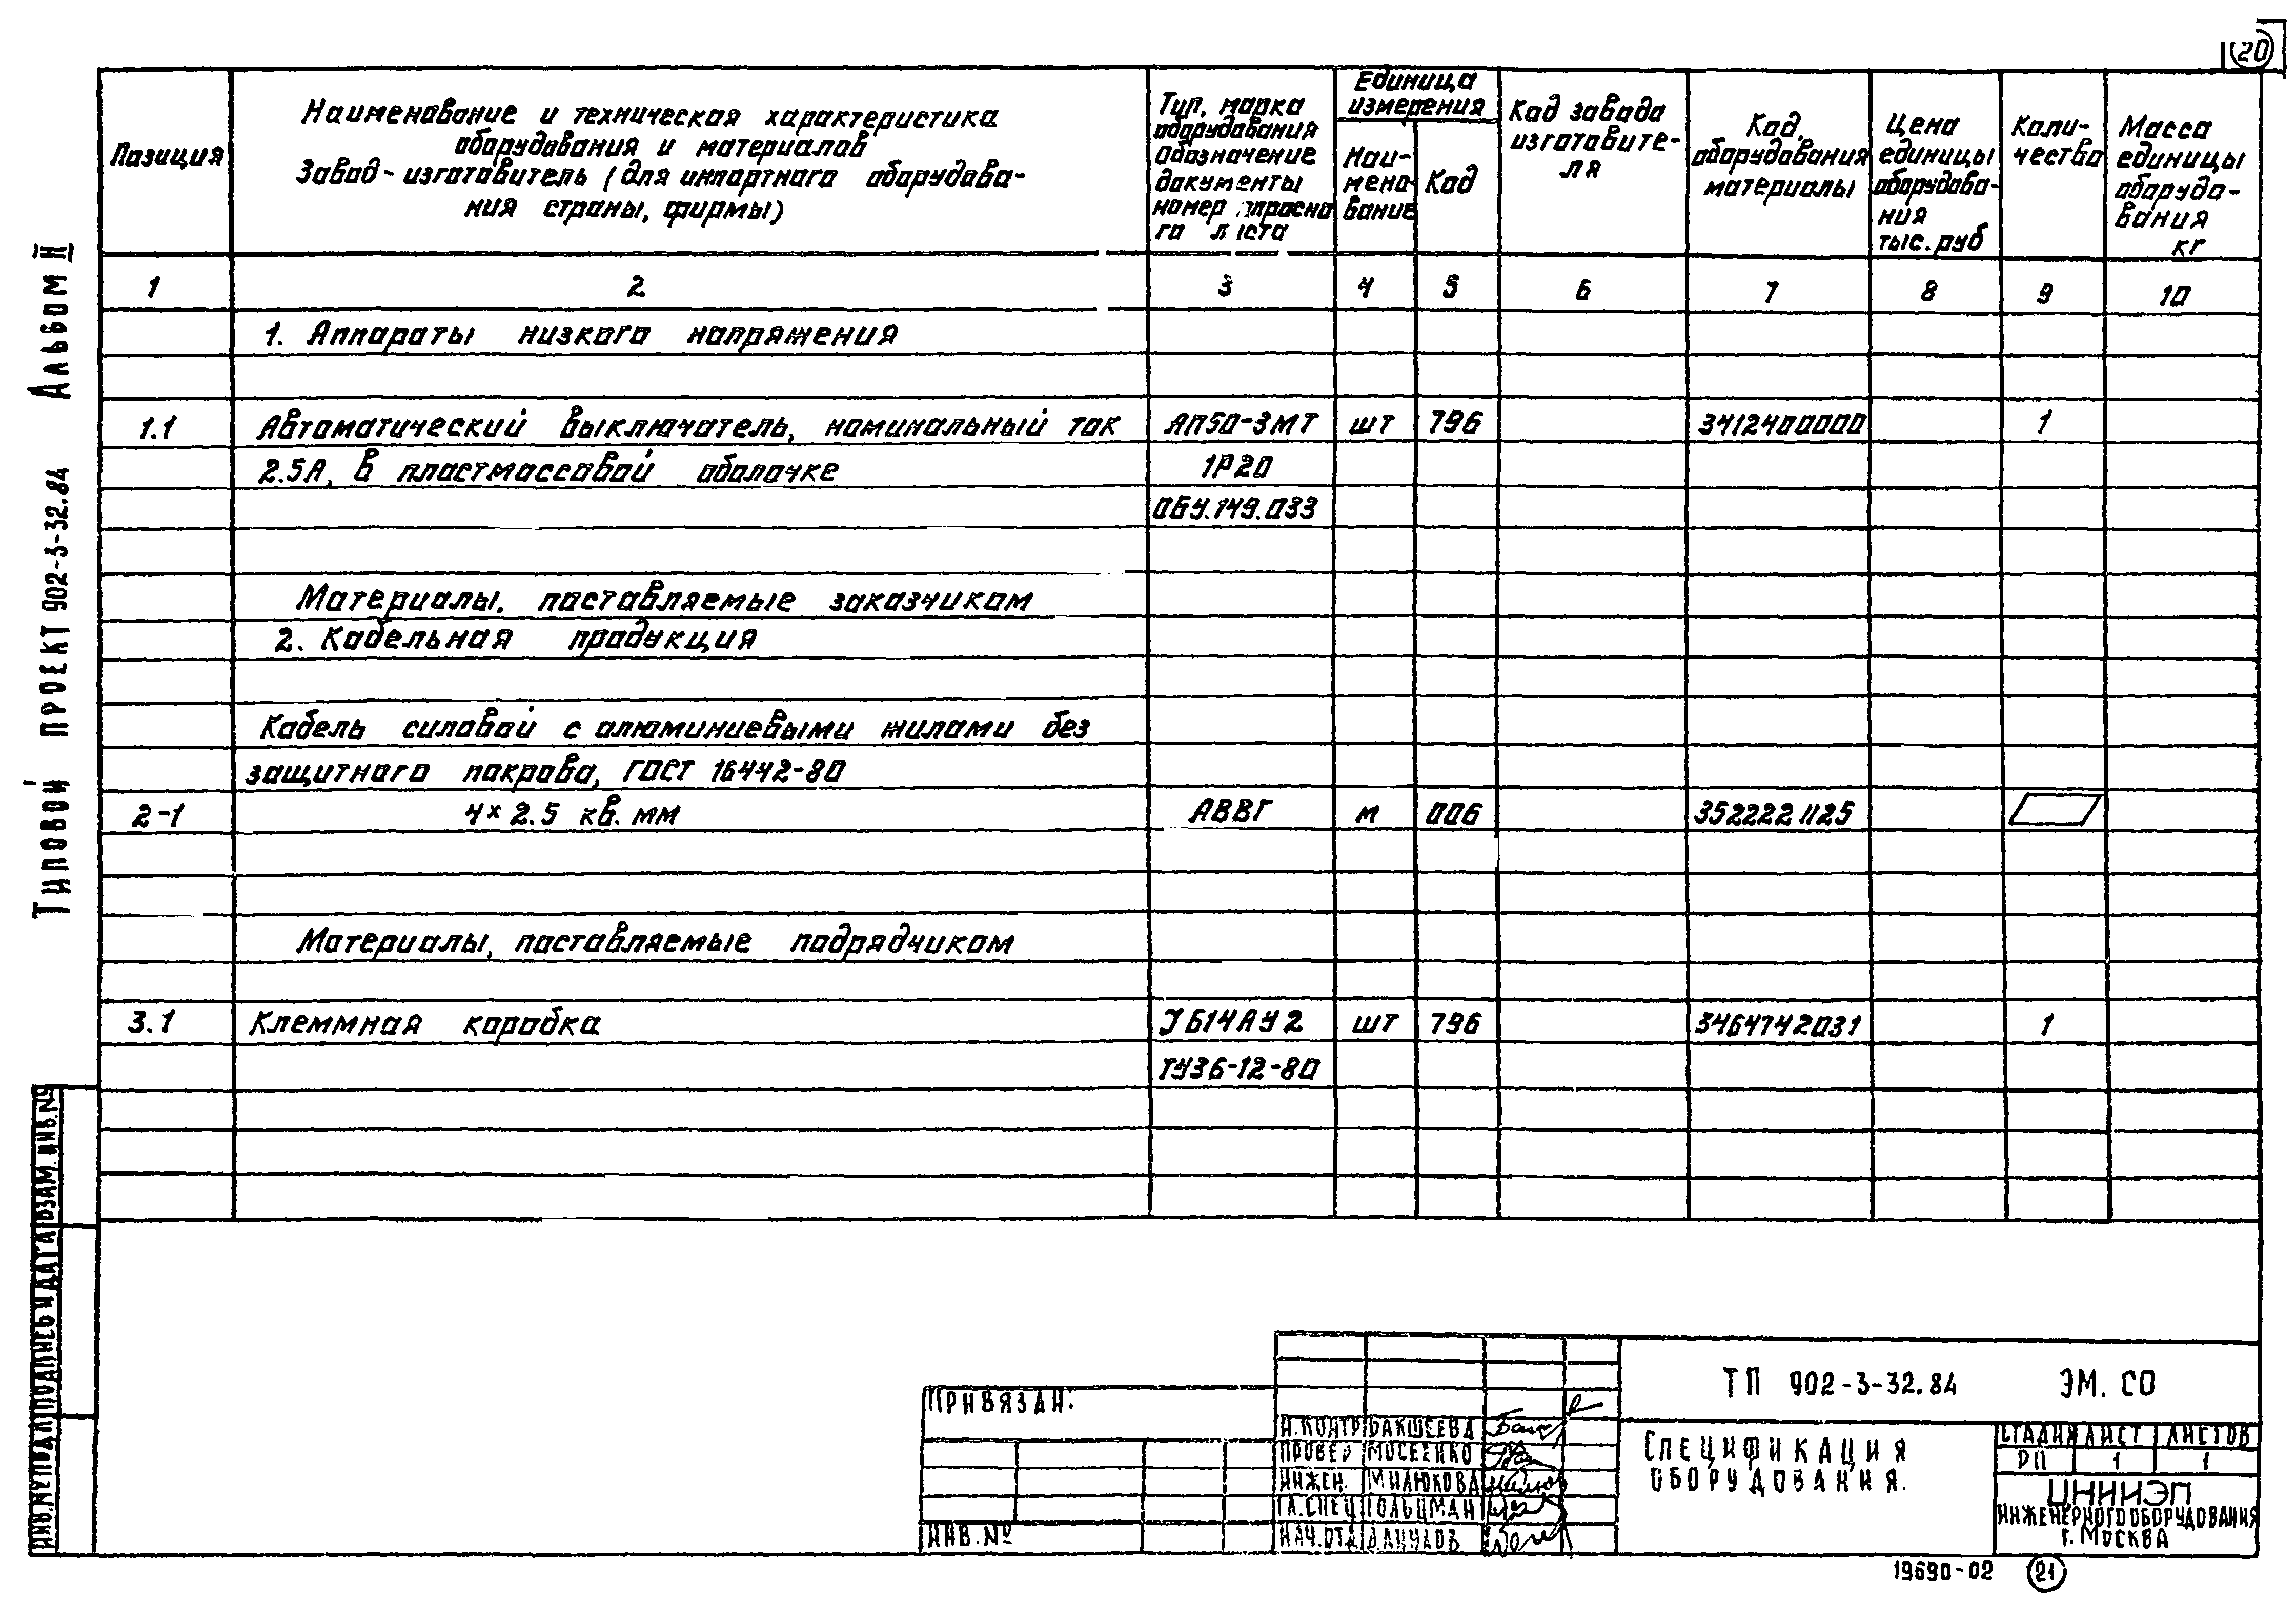 20
Типовой проект 902-3-32.84 Альбом II
Позиция
Наименование и техническая характеристика
оборудования и материалов
Завод-изготовитель (для импортного оборудова-
ния страны, фирмы)
Тип, марка
оборудования
Обозначение
документы
номер опросно
го листа
Единица
измерения
Наи-
мено-
вание
Код
Код завода
изготовите-
ля
Код,
оборудования
материалы
Цена
единицы
оборудова-
ния
тыс. руб
Коли-
чество
Масса
единицы
оборудо-
вания
кг
1 2 3 4 5 6 7 8 9 10
1. Аппараты низкого напряжения
1.1 Автоматический выключатель, номинальный ток АП50-3МТ шт 796 3412400000 1
2.5А, в пластмассовой оболочке 1Р20
ОБУ.149.033
Материалы, поставляемые заказчиком
2. Кабельная продукция
Кабель силовой с алюминиевыми жилами без
защитного покрова, ГОСТ 16442-80
2-1 4×2.5 кв. мм АВВГ м 006 3522221125
Материалы, поставляемые подрядчиком
3.1 Клеммная коробка У614АУ2 шт 796 3464742031 1
ТУ36-12-80
ИНВ.№ПОДЛ ПОДПИСЬ И ДАТА ВЗАМ.ИНВ.№
ПРИВЯЗАН:
ИНВ.№
Н.КОНТР БАКШЕЕВА
ПРОВЕР МОСЕЕНКО
ИНЖЕН. МИЛЮКОВА
ГЛ.СПЕЦ ГОЛЬЦМАН
НАЧ.ОТД ДАНИЛОВ
ТП 902-3-32.84 ЭМ.СО
СПЕЦИФИКАЦИЯ
ОБОРУДОВАНИЯ.
СТАДИЯ ЛИСТ ЛИСТОВ
РП 1 1
ЦНИИЭП
ИНЖЕНЕРНОГО ОБОРУДОВАНИЯ
Г. МОСКВА
19690-02 21